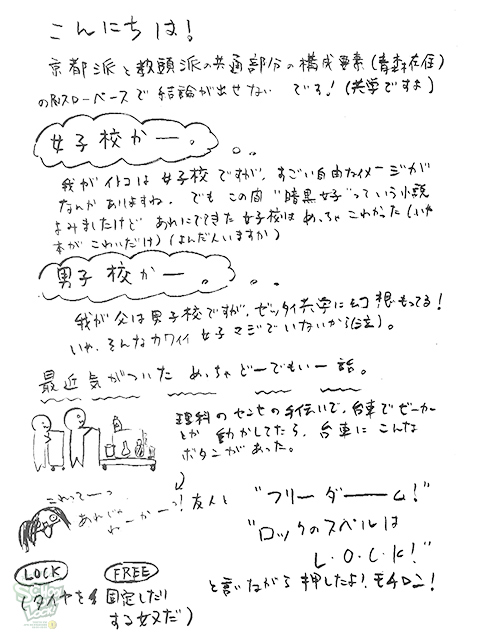 こんにちは!
京都派と教頭派の共通部分の構成要素(青森在住)
のRNスローペースで結論が出せない でる!(共学ですよ)
女子校かー。
我がイトコは女子校ですが、すごい自由なイメージが
なんかありますね。でもこの間"暗黒女子"っていう小説
よみましたけど あれにでてきた女子校は めっちゃ こわかった(いや
本がこわいだけ)(よんだ人いますか)
男子校かー
我が父は男子校ですが、ゼッタイ共学に幻想もってる!
いや、そんなカワイイ女子マジでいないから(泣)。
最近気がついた めっちゃどーでもいー話。
理科のセンセの手伝いで、台車でビーカー
とか動かしてたら、台車にこんな
ボタンがあった。
これってーっ
あれじゃ
わーかーっ!
友人と
"フリーダーーム!"
"ロックのスペルは
L・O・C・K!"
と言いながら押したよ!モチロン!
LOCK FREE
(タイヤを固定したり
する奴だ)